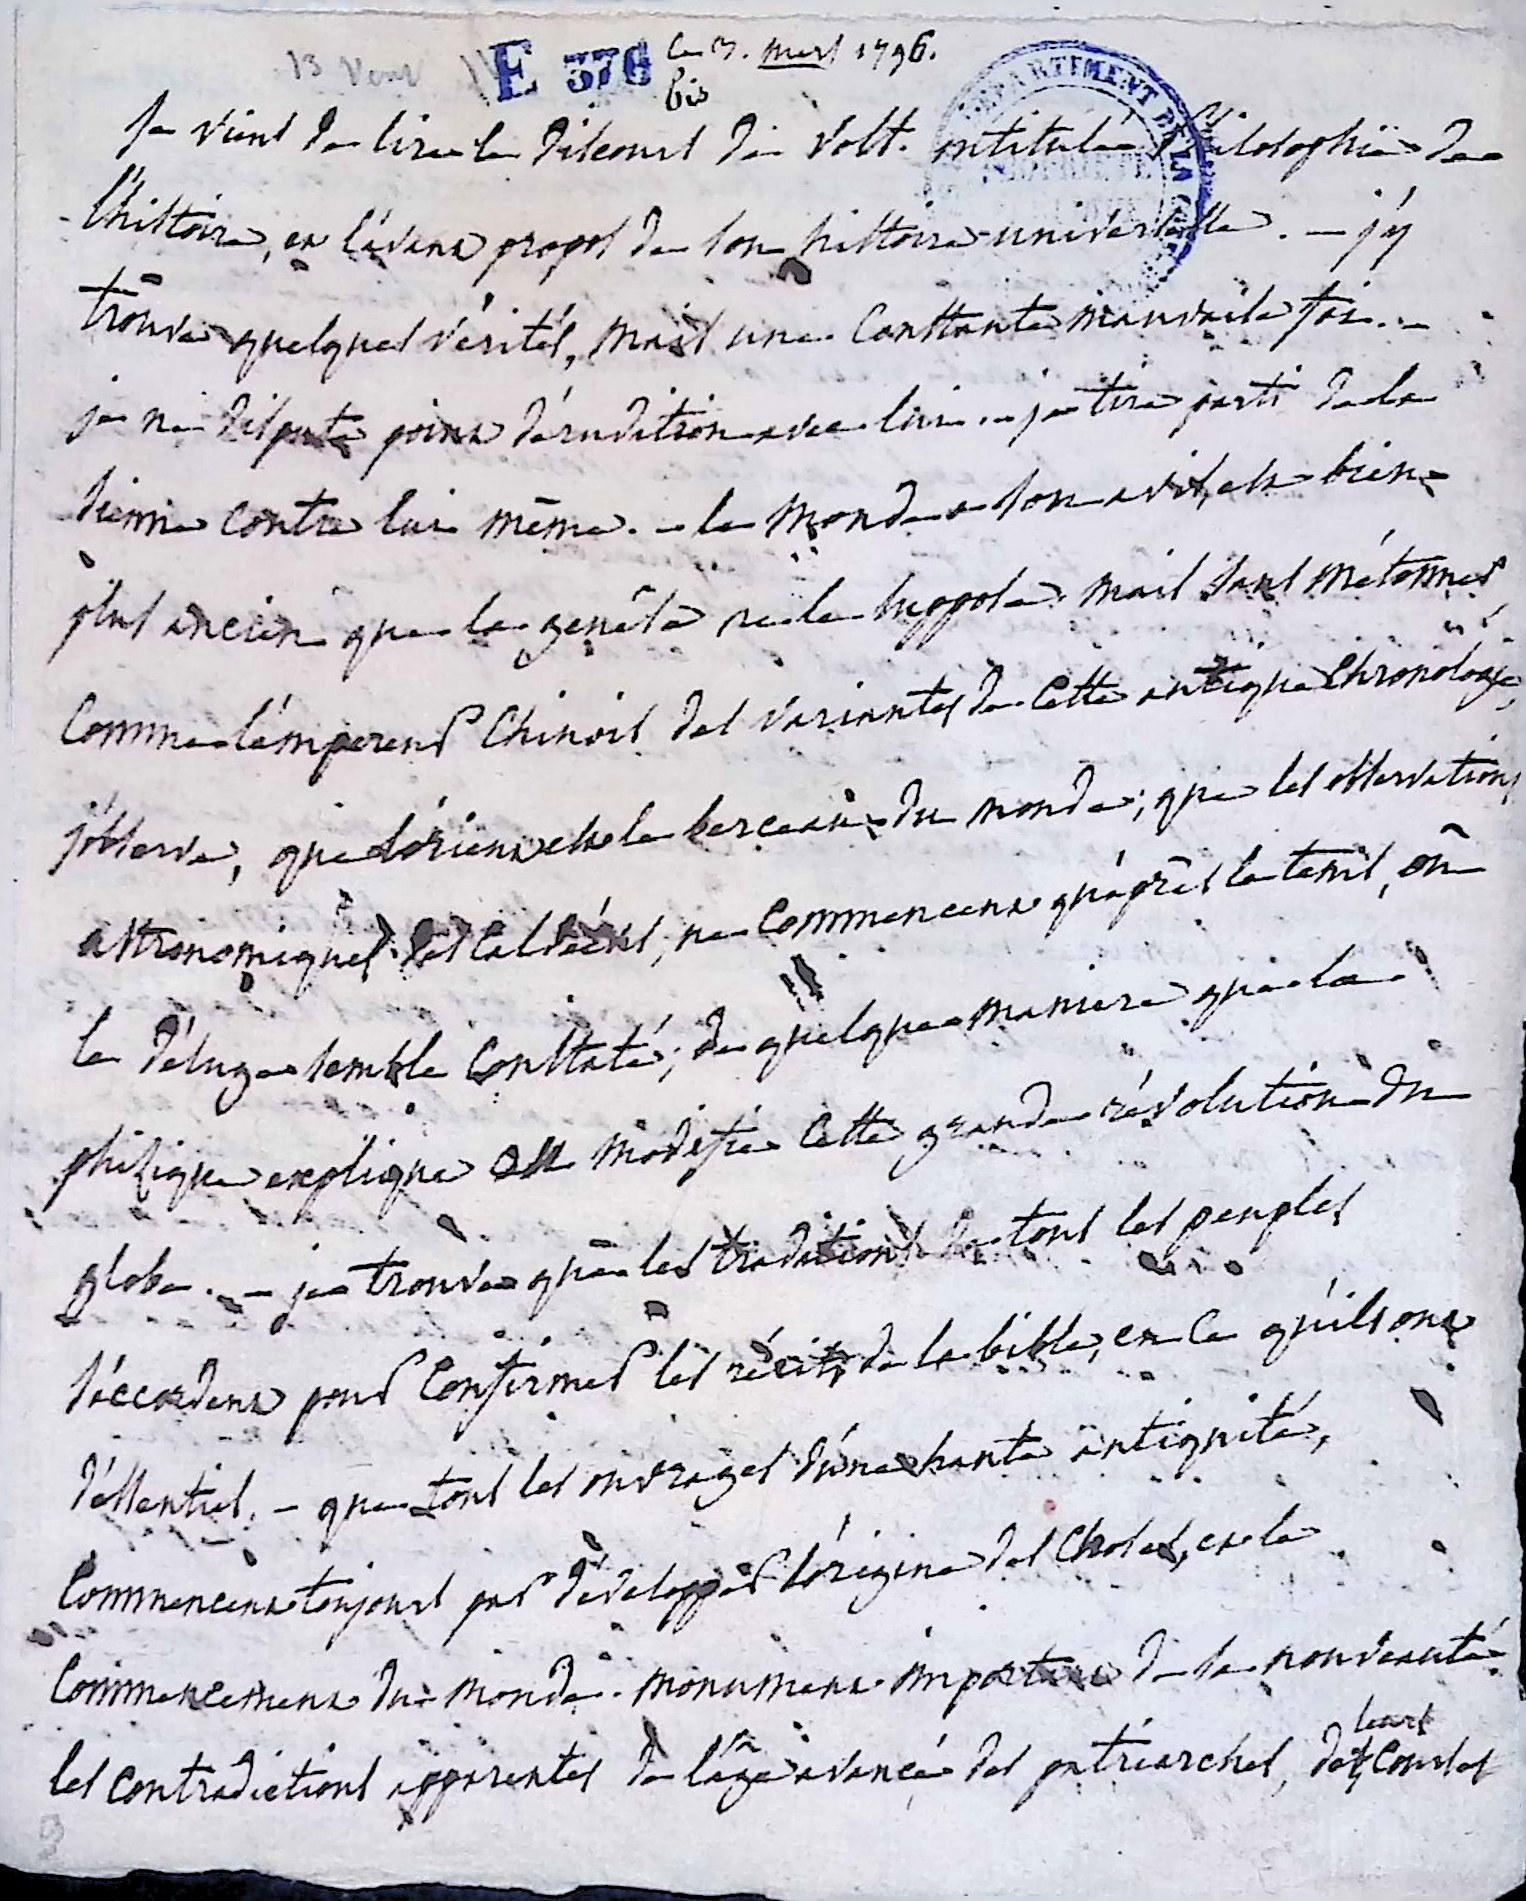 13 Vent
E 376
bis
Ce 3. mars 1796.
DÉPARTEMENT DE LA
Je viens de lire le discours de Volt. intitulé Philosophie de
l'histoire, en l'avant propos de son histoire universelle. – j'y
trouve quelques vérités, mais une constante mauvaise foi. –
je ne dispute point d'érudition avec lui. – je tire parti de la
sienne contre lui même. – le monde a son avis, est bien
plus ancien que la genèse ne le suppose. mais sans m'étonner
comme l'empereur Chinois des variantes de cette antique chronologie,
j'observe, que l'orient est le berceau du monde; que les observations
astronomiques des Caldéens, ne commencent qu'après le tems, où
le déluge semble constaté; de quelque maniere que la
phisique explique ou modifie cette grande révolution du
globe. – je trouve que les traditions de tous les peuples
s'accordent pour confirmer les récits de la bible, en ce qu'ils ont
d'essentiel. – que tous les ouvrages d'une haute antiquité,
commencent toujours par développer l'origine des choses, et le
commencement du monde. monument important de sa nouveauté
les contradictions apparentes de l'âge avancé des patriarches, de leurs courses